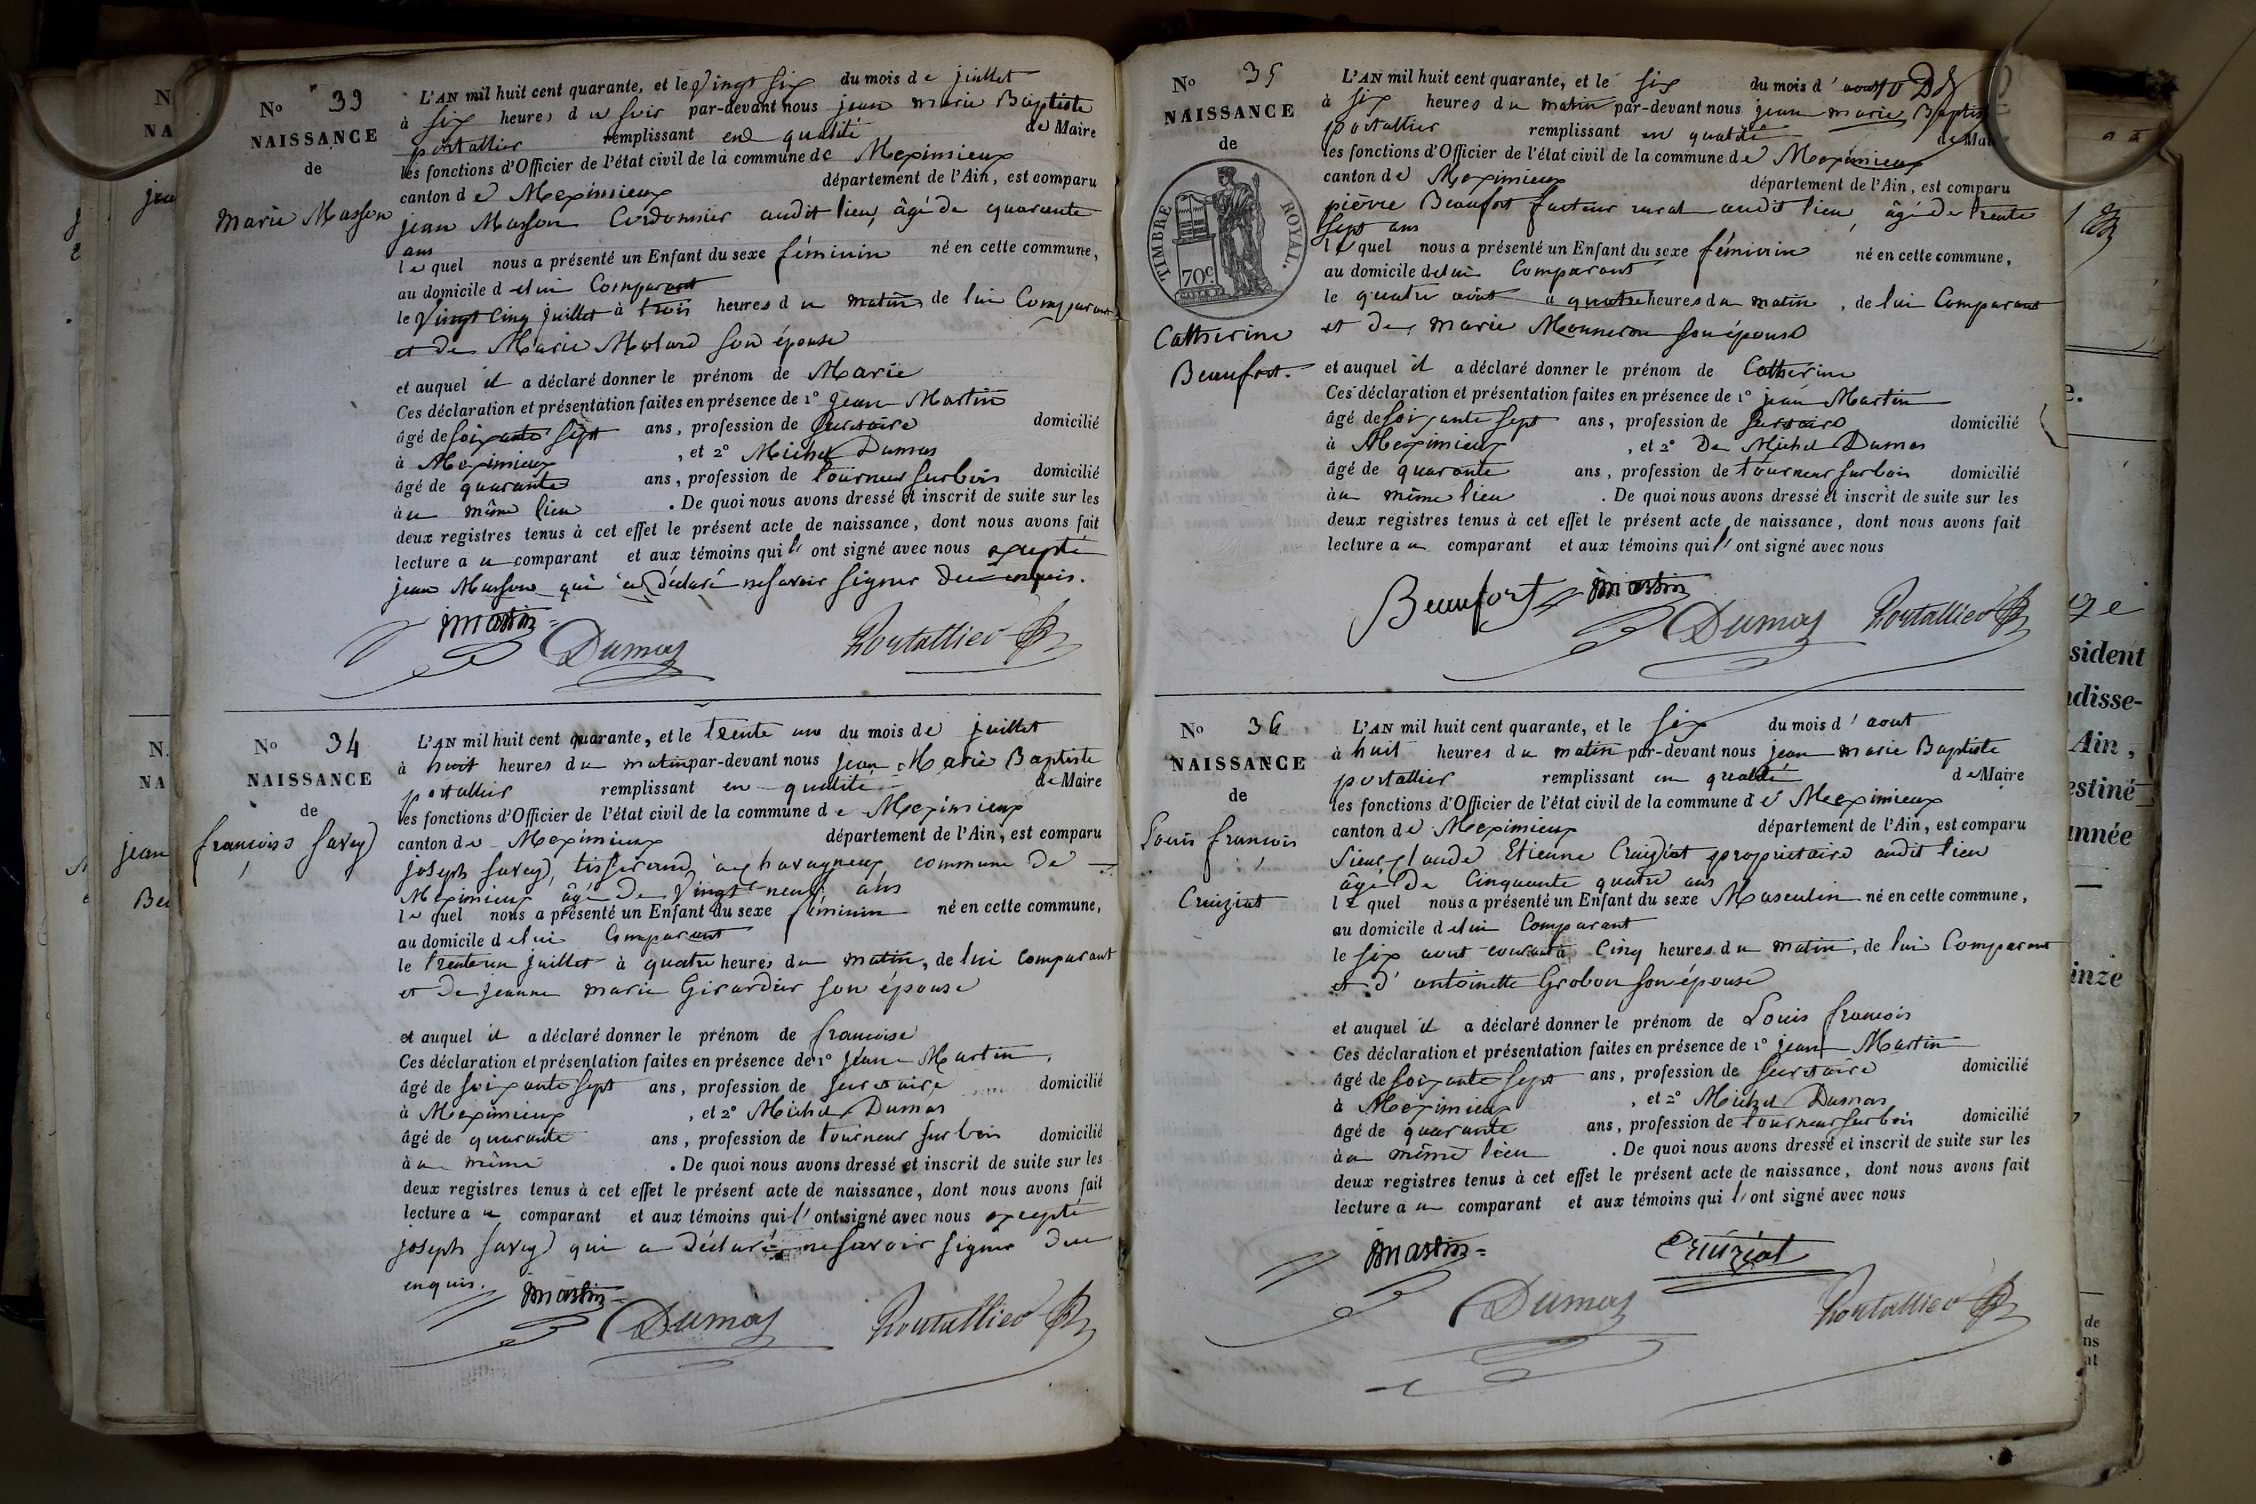 N° 33
NAISSANCE
de
Marie Masson
L'AN mil huit cent quarante, et le Vingt six du mois de juillet
à six heures du soir par-devant nous jean marie Baptiste
portallier remplissant en qualité de Maire
les fonctions d'Officier de l'état civil de la commune de Meximieux
canton de Meximieux département de l'Ain, est comparu
jean Masson Cordonnier audit lieu, âgé de quarante
ans
lequel nous a présenté un Enfant du sexe féminin né en cette commune,
au domicile de lui Comparant
le Vingt Cinq juillet à trois heures du matin, de lui Comparant
et de Marie Molard son épouse
et auquel il a déclaré donner le prénom de Marie
Ces déclaration et présentation faites en présence de 1° jean Martin
âgé de soixante sept ans, profession de secrétaire domicilié
à Meximieux, et 2° Michel Dumas
âgé de quarante ans, profession de tourneur sur bois domicilié
à u même lieu. De quoi nous avons dressé et inscrit de suite sur les
deux registres tenus à cet effet le présent acte de naissance, dont nous avons fait
lecture au comparant et aux témoins qui l' ont signé avec nous excepté
jean Masson qui a déclaré ne savoir signer de ce enquis.
Martin
Dumas
Portallier
N° 34
NAISSANCE
de
françoise Savey
L'AN mil huit cent quarante, et le trente un du mois de juillet
à huit heures du matin par-devant nous jean Marie Baptiste
portallier remplissant en qualité de Maire
les fonctions d'Officier de l'état civil de la commune de Meximieux
canton de Meximieux département de l'Ain, est comparu
joseph Savey, tisserand à chavagneux commune de
Meximieux âgé de Vingt neuf ans
lequel nous a présenté un Enfant du sexe féminin né en cette commune,
au domicile de lui Comparant
le trente un juillet à quatre heures du matin, de lui comparant
et de jeanne marie Girardier son épouse
et auquel il a déclaré donner le prénom de francoise
Ces déclaration et présentation faites en présence de 1° jean Martin,
âgé de soixante sept ans, profession de secretaire domicilié
à Meximieux, et 2° Michel Dumas
âgé de quarante ans, profession de tourneur sur bois domicilié
à u même. De quoi nous avons dressé et inscrit de suite sur les
deux registres tenus à cet effet le présent acte de naissance, dont nous avons fait
lecture au comparant et aux témoins qui l' ont signé avec nous excepté
joseph Savey qui a déclaré ne savoir signer de ce
enquis.
Martin
Dumas
Portallier
N° 35
NAISSANCE
de
TIMBRE ROYAL.
70c
Catherine
Beaufort.
L'AN mil huit cent quarante, et le six du mois d'aout
à six heures du matin par-devant nous jean marie Baptiste
portallier remplissant en qualité de Maire
les fonctions d'Officier de l'état civil de la commune de Meximieux
canton de Meximieux département de l'Ain, est comparu
pierre Beaufort facteur rural audit lieu, âgé de trente
sept ans
lequel nous a présenté un Enfant du sexe féminin né en cette commune,
au domicile de lui Comparant
le quatre aout à quatre heures du matin, de lui Comparant
et de marie Mounron son épouse
et auquel il a déclaré donner le prénom de Catherine
Ces déclaration et présentation faites en présence de 1° jean Martin
âgé de soixante sept ans, profession de domicilié
à Meximieux, et 2° De Michel Dumas
âgé de quarante ans, profession de tourneur sur bois domicilié
à u même lieu. De quoi nous avons dressé et inscrit de suite sur les
deux registres tenus à cet effet le présent acte de naissance, dont nous avons fait
lecture au comparant et aux témoins qui l' ont signé avec nous
Beaufort
Martin
Dumas
Portallier
N° 36
NAISSANCE
de
Louis francois
Cruiziat
L'AN mil huit cent quarante, et le six du mois d'aout
à huit heures du matin par-devant nous jean marie Baptiste
portallier remplissant en qualité de Maire
les fonctions d'Officier de l'état civil de la commune de Meximieux
canton de Meximieux département de l'Ain, est comparu
sieur claude Etienne Cruiziat propriétaire audit lieu
âgé de Cinquante quatre ans
lequel nous a présenté un Enfant du sexe Masculin né en cette commune,
au domicile de lui Comparant
le six aout courant à Cinq heures du matin, de lui Comparant
et d'antoinette Grobon son épouse
et auquel il a déclaré donner le prénom de Louis francois
Ces déclaration et présentation faites en présence de 1° jean Martin
âgé de soixante sept ans, profession de secretaire domicilié
à Meximieux, et 2° Michel Dumas
âgé de quarante ans, profession de tourneur sur bois domicilié
à u même lieu. De quoi nous avons dressé et inscrit de suite sur les
deux registres tenus à cet effet le présent acte de naissance, dont nous avons fait
lecture au comparant et aux témoins qui l' ont signé avec nous
Martin
Cruiziat
Dumas
Portallier